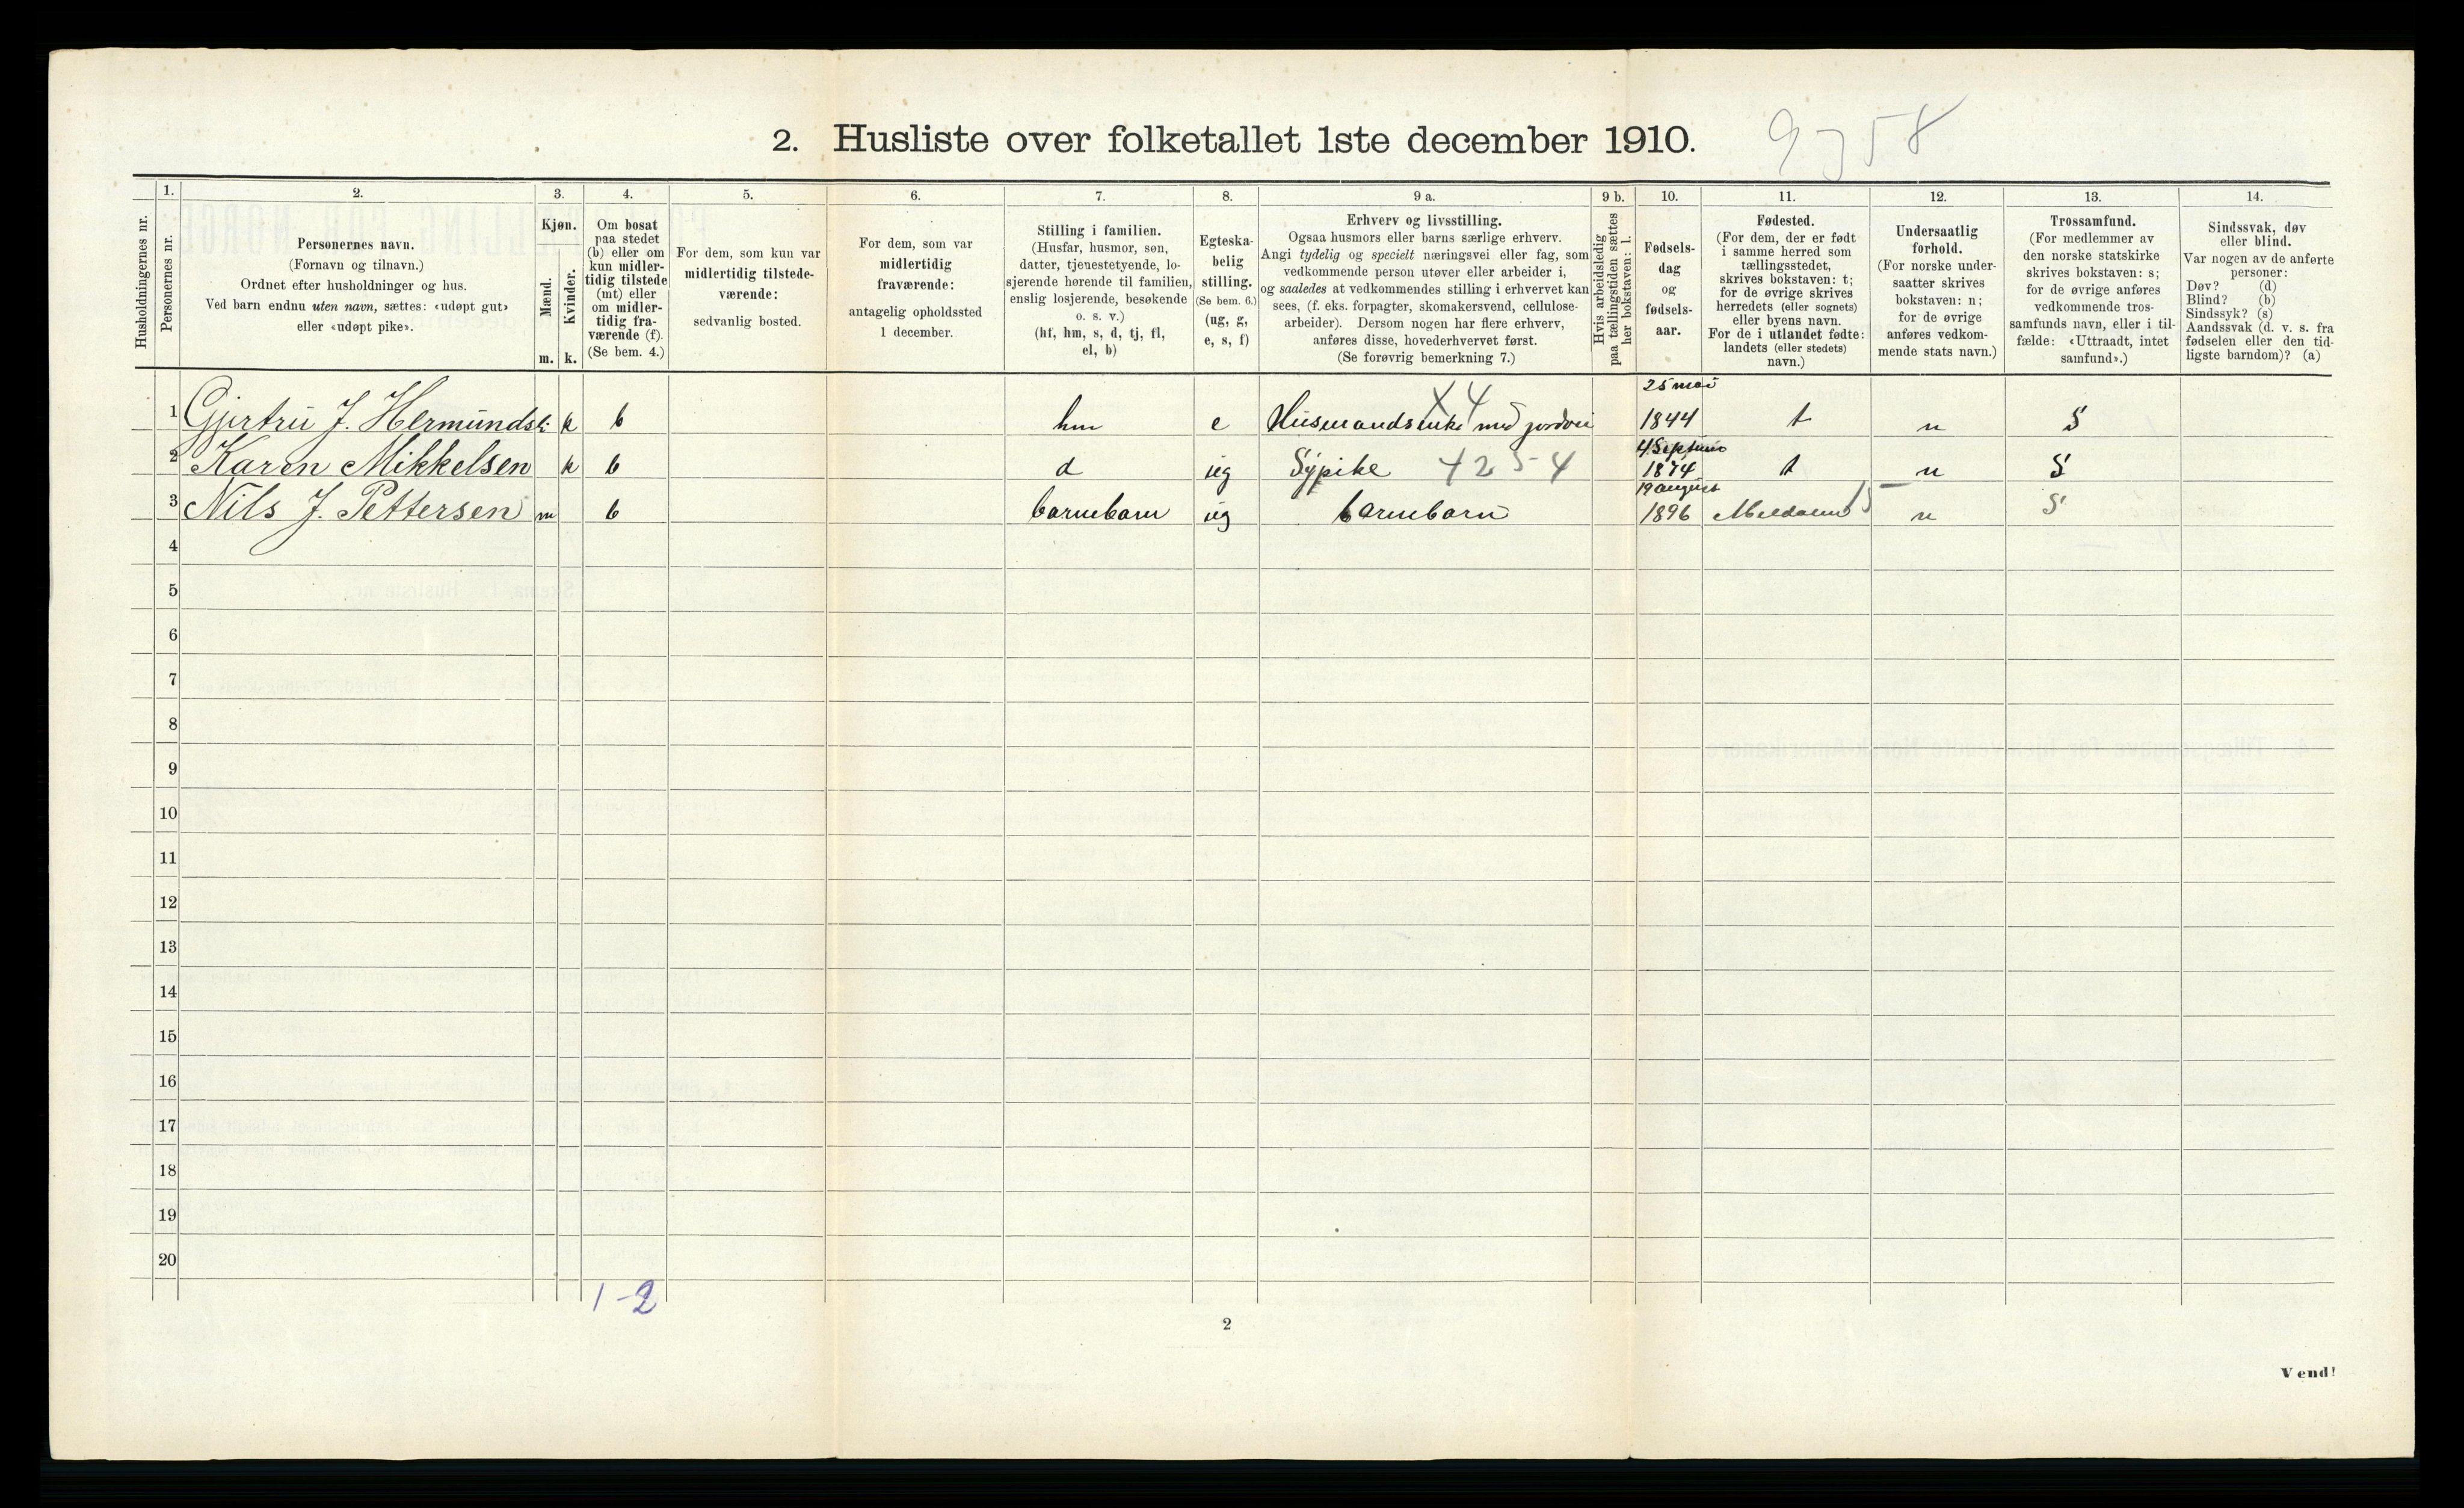 2. Husliste over folketallet 1ste december 1910.
Husholdningernes nr.
1.
Personernes nr.
2.
Personernes navn.
(Fornavn og tilnavn.)
Ordnet efter husholdninger og hus.
Ved barn endnu uten navn, sættes: «udøpt gut»
eller «udøpt pike».
3.
Kjøn.
Mænd.
Kvinder.
m. k.
4.
Om bosat
paa stedet
(b) eller om
kun midler-
tidig tilstede
(mt) eller
om midler-
tidig fra-
værende (f).
(Se bem. 4.)
5.
For dem, som kun var
midlertidig tilstede-
værende:
sedvanlig bosted.
6.
For dem, som var
midlertidig
fraværende:
antagelig opholdssted
1 december.
7.
Stilling i familien.
(Husfar, husmor, søn,
datter, tjenestetyende, lo-
sjerende hørende til familien,
enslig losjerende, besøkende
o. s. v.)
(hf, hm, s, d, tj, fl,
el, b)
8.
Egteska-
belig
stilling.
(Se bem. 6.)
(ug, g,
e, s, f)
9 a.
Erhverv og livsstilling.
Ogsaa husmors eller barns særlige erhverv.
Angi tydelig og specielt næringsvei eller fag, som
vedkommende person utøver eller arbeider i,
og saaledes at vedkommendes stilling i erhvervet kan
sees, (f. eks. forpagter, skomakersvend, cellulose-
arbeider). Dersom nogen har flere erhverv,
anføres disse, hovederhvervet først.
(Se forøvrig bemerkning 7.)
9 b.
Hvis arbeidsledig
paa tællingstiden sættes
her bokstaven: l.
10.
Fødsels-
dag
og
fødsels-
aar.
11.
Fødested.
(For dem, der er født
i samme herred som
tællingsstedet,
skrives bokstaven: t;
for de øvrige skrives
herredets (eller sognets)
eller byens navn.
For de i utlandet fødte:
landets (eller stedets)
navn.)
12.
Undersaatlig
forhold.
(For norske under-
saatter skrives
bokstaven: n;
for de øvrige
anføres vedkom-
mende stats navn.)
13.
Trossamfund.
(For medlemmer av
den norske statskirke
skrives bokstaven: s;
for de øvrige anføres
vedkommende tros-
samfunds navn, eller i til-
fælde: «Uttraadt, intet
samfund».)
14.
Sindssvak, døv
eller blind.
Var nogen av de anførte
personer:
Døv? (d)
Blind? (b)
Sindssyk? (s)
Aandssvak (d. v. s. fra
fødselen eller den tid-
ligste barndom)? (a)
1 Gjertru J. Hermunds k b hm e Husmandsenke med jordvei X 4 25 mai 1844 t n S
2 Karen Mikkelsen k b d ug Sypike 4254 4 1874 t n S
3 Nils J. Pettersen m b barnebarn ug barnebarn 19 august 1896 15 n S
4
5
6
7
8
9
10
11
12
13
14
15
16
17
18
19
20
1-2
2
Vend!